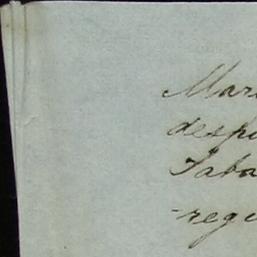 Mar
desp
Taba
-regi